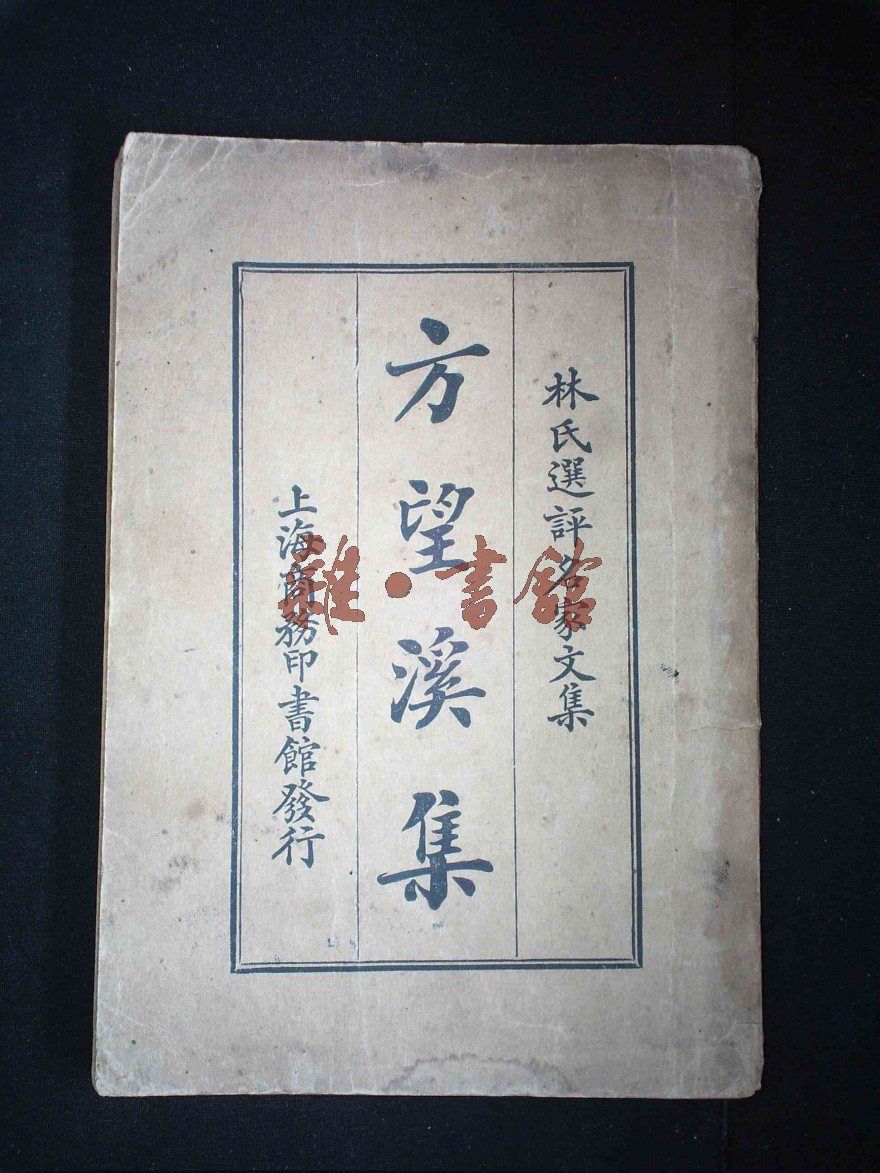 林氏選評名家文集
方望溪集
上海商務印書館發行
雜·書館